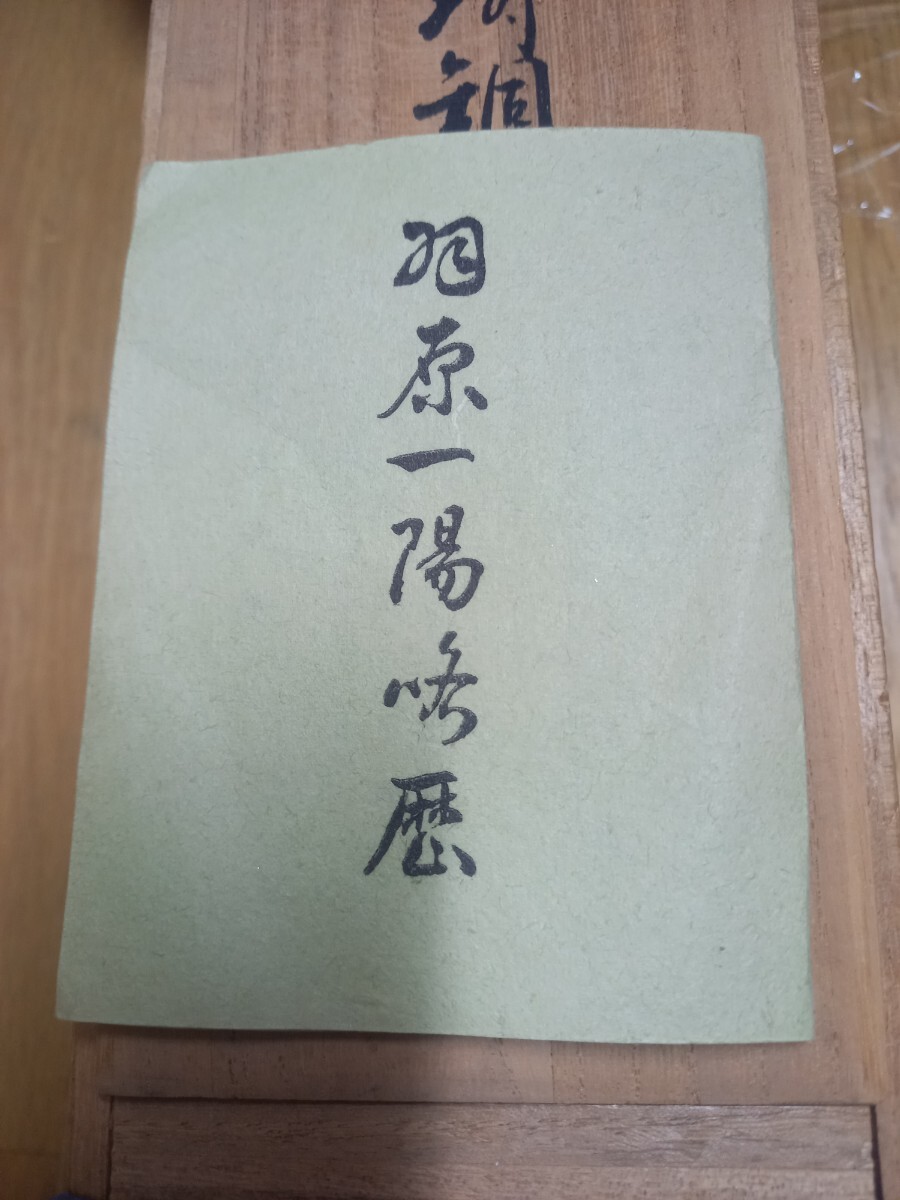 銅
羽原一陽略歴